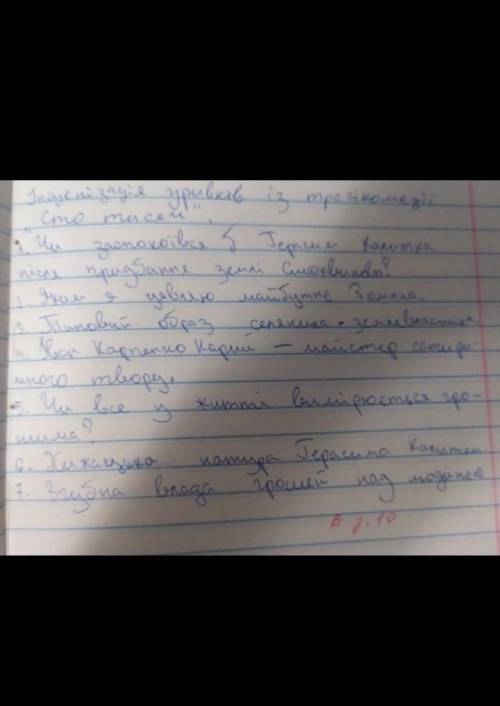 Інсценізація уривків із трагікомедії
"Сто тисяч".
1. Чи заспокоївся б Герасим Калитка
після придбання землі Смоквиново?
2. Яким я уявляю майбутнє Романа.
3. Типовий образ селянина-землевласника
4. Іван Карпенко Карий — майстер сатири-
чного твору.
5. Чи все у житті вимірюється гро-
шима?
6. Хижацька натура Герасима Калитки
7. Згубна влада грошей над людиною
В д. 10